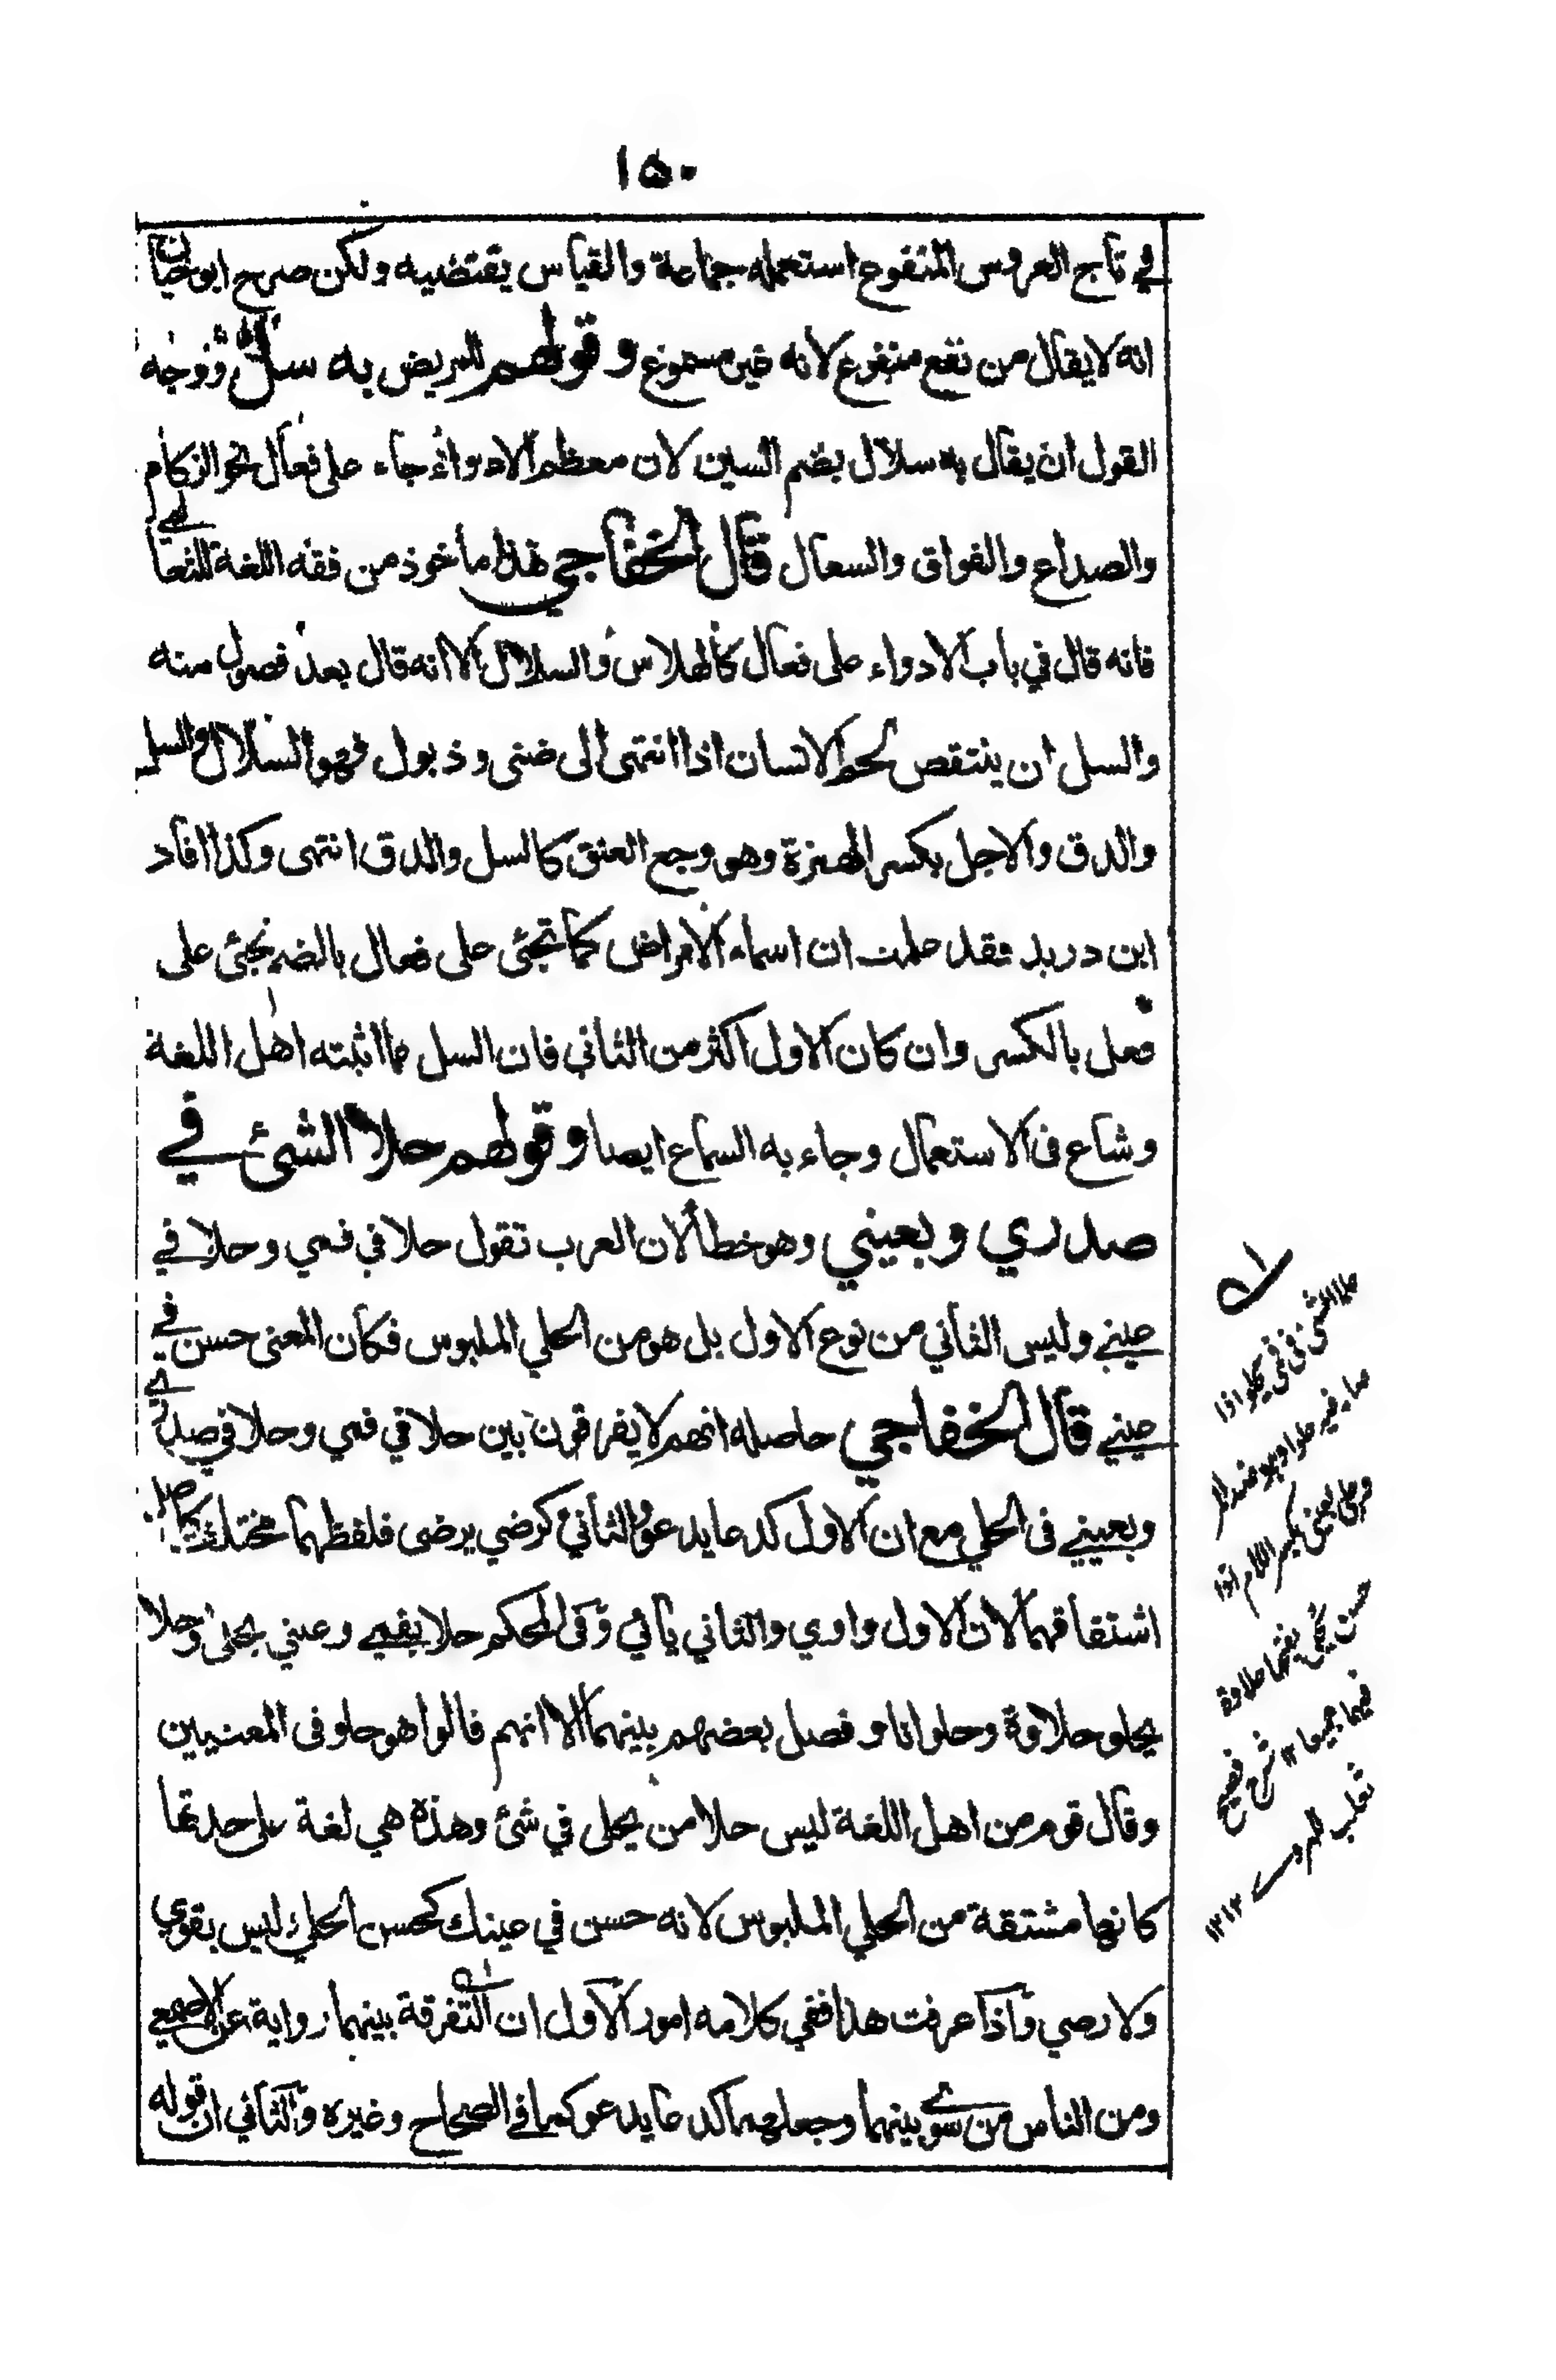 ١٥٠
في تاج العروس المنفوع استعمله جماعة والقياس يقتضيه ولكن صرح ابو حيان
انه لا يقال من نفع منفوع لانه غير مسموع وقولهم للمريض به سل ووجه
القول ان يقال به سلال بضم السين لان معظم الادواء جاء على فعال نحو الزكام
والصداع والفواق والسعال قال الخفاجي هذا ماخوذ من فقه اللغة للثعالبي
فانه قال في باب الادواء على فعال كالهلاس والسلال الا انه قال بعد فصول منه
والسل ان ينتقص لحم الانسان اذا انتهى الى ضنى وذبول فهو السلال والسل
والدق والاجل بكسر الهمزة وهو وجع العنق كالسل والدق انتهى وكذا افاد
ابن دريد فقد علمت ان اسماء الامراض كما تجئ على فعال بالضم تجئ على
فعل بالكسر وان كان الاول اكثر من الثاني فان السل مما اثبته اهل اللغة
وشاع فى الاستعمال وجاء به السماع ايضا وقولهم حلا الشئ في
صدري وبعيني وهو خطأ لان العرب تقول حلا في فمي وحلا في
عيني وليس الثاني من نوع الاول بل هو من الحلي الملبوس فكان المعنى حسن في
عيني قال الخفاجي حاصله انهم لا يفرقون بين حلا في فمي وحلا في صدري
وبعيني فى الحلي مع ان الاول كدعا يدعو والثاني كرضي يرضى فلفظهما مختلف كاصل
اشتقاقهما لان الاول واوي والثاني يائي وفى المحكم حلا بفمي وعيني يحلى وحلا
يحلو حلاوة وحلوانا وفصل بعضهم بينهما الا انهم قالوا هو حلو فى المعنيين
وقال قوم من اهل اللغة ليس حلا من يحلى في شئ وهذه هي لغة على حدتها
كانها مشتقة من الحلي الملبوس لانه حسن في عينك كحسن الحلي ليس بقوي
ولا رضي واذا عرفت هذا ففي كلامه امور الاول ان التفرقة بينهما رواية عن الاصمعي
ومن الناس من سوى بينهما وجعلهما كدعا يدعو كما في الصحاح وغيره والثاني ان قوله
حلا الشئ فى فمى يحلو اذا
صار فيه حلوا وهو ضد المر
وحلى بعينى بكسر اللام اذا
حسن يحلى بفتحها حلاوة
فيهما جميعا ١٢ شرح فصيح
ثعلب للهروى ١٢١٢